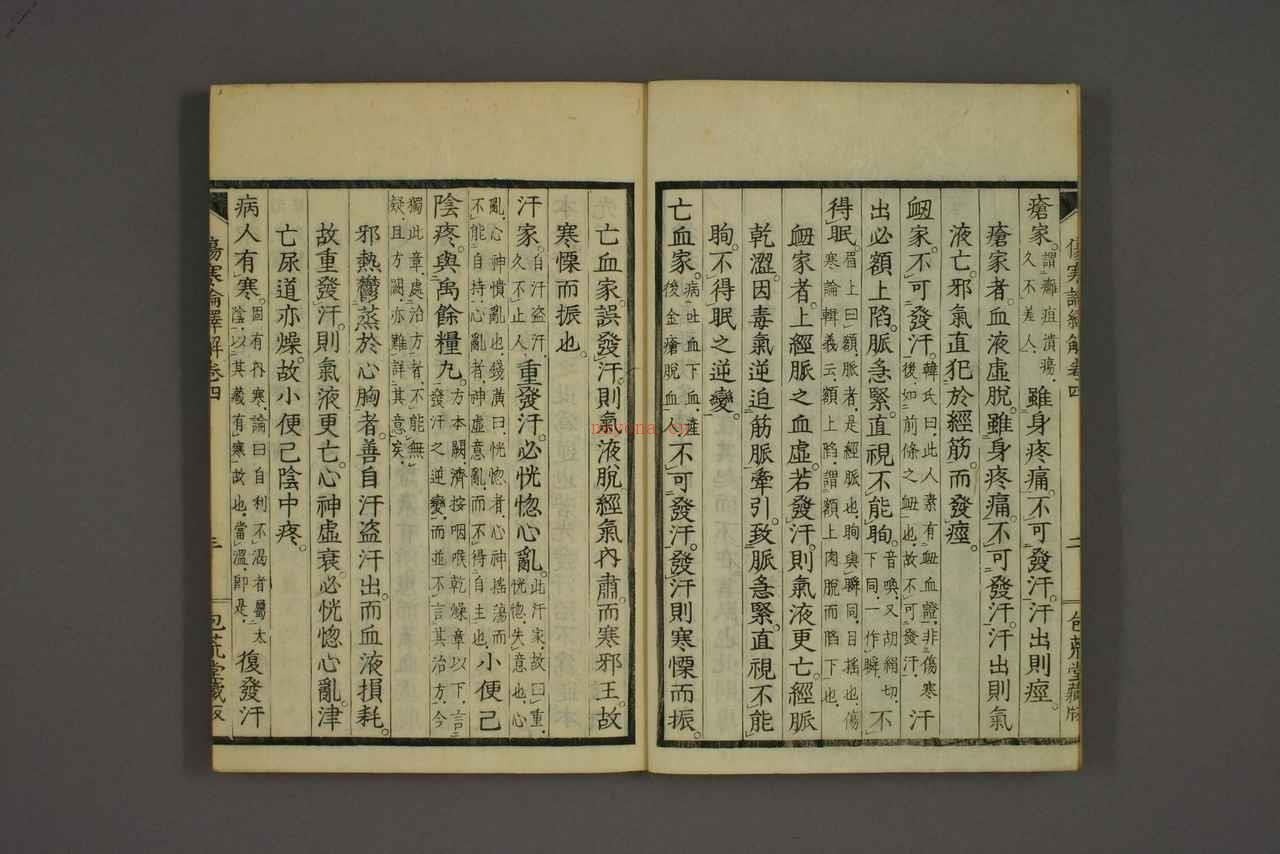 瘡家。謂癰疽潰瘍、久不差人、雖身疼痛。不可發汗。汗出則痙。
瘡家者。血液虛脫。雖身疼痛。不可發汗。汗出則氣
液亡。邪氣直犯於經筋。而發痙。
衄家。不可發汗。韓氏曰、此人素有衄血證、非傷寒後、如前條之衄也、故不可發汗、汗
出必額上陷。脈急緊。直視不能眴。音喚、又胡絹切、下同、一作瞬、不
得眠。眉上曰額、脈者、是經脈也、眴與瞬同、目搖也、傷寒論輯義云、額上陷、謂額上肉脫而陷下也、
衄家者。上經脈之血虛。若發汗。則氣液更亡。經脈
乾澀。因毒氣逆迫筋脈牽引。致脈急緊。直視不能
眴。不得眠之逆變。
亡血家。病吐血下血、產後金瘡脫血人、不可發汗。發汗則寒慄而振。
傷寒論繹解卷四 二 包荒堂藏版
亡血家。誤發汗。則氣液脫經氣內肅。而寒邪王。故
本寒慄而振也。
汗家。自汗盜汗、久不止人、重發汗。必恍惚心亂。此汗家、故曰重、恍惚、失意也、心
亂、心神憒亂也、錢潢曰、恍惚者、心神搖蕩、而不能自持、心亂者、神虛意亂、而不得自主也、小便已
陰疼。與禹餘糧丸。方本闕、濟按咽喉乾燥章以下、言發汗之逆變、而並不言其治方、今
獨此章、處治方者、不能無疑、且方闕、亦難詳其意矣、
邪熱鬱蒸於心胸者。善自汗盜汗出。而血液損耗。
故重發汗。則氣液更亡。心神虛衰。必恍惚心亂。津
亡尿道亦燥。故小便已陰中疼。
病人有寒。固有內寒、論曰自利不渴者屬太陰、以其藏有寒故也、當溫、即是、復發汗
傷寒論繹解卷四 三 包荒堂藏版